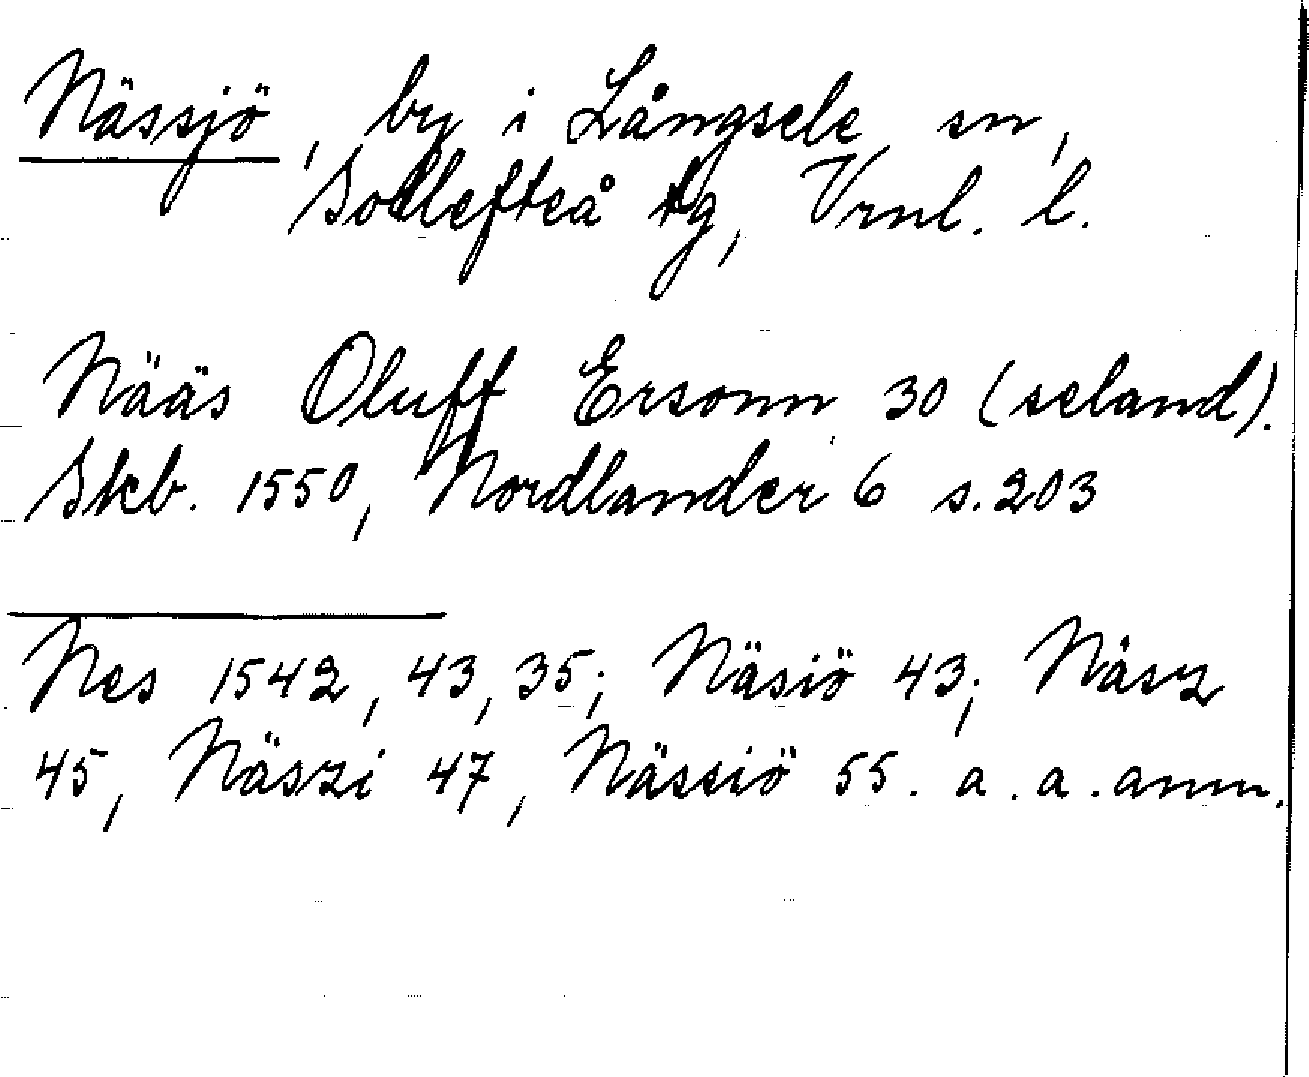 Nässjö, by i Långsele sn,
Sollefteå tg, Vrnl. l.
Nääs Oluff Ersonn 30 (seland).
Skb. 1550, Nordlander 6 s. 203
Nes 1542, 43, 35; Näsiö 43; Näsz
45, Näszi 47, Nässiö 55. a. a. anm.